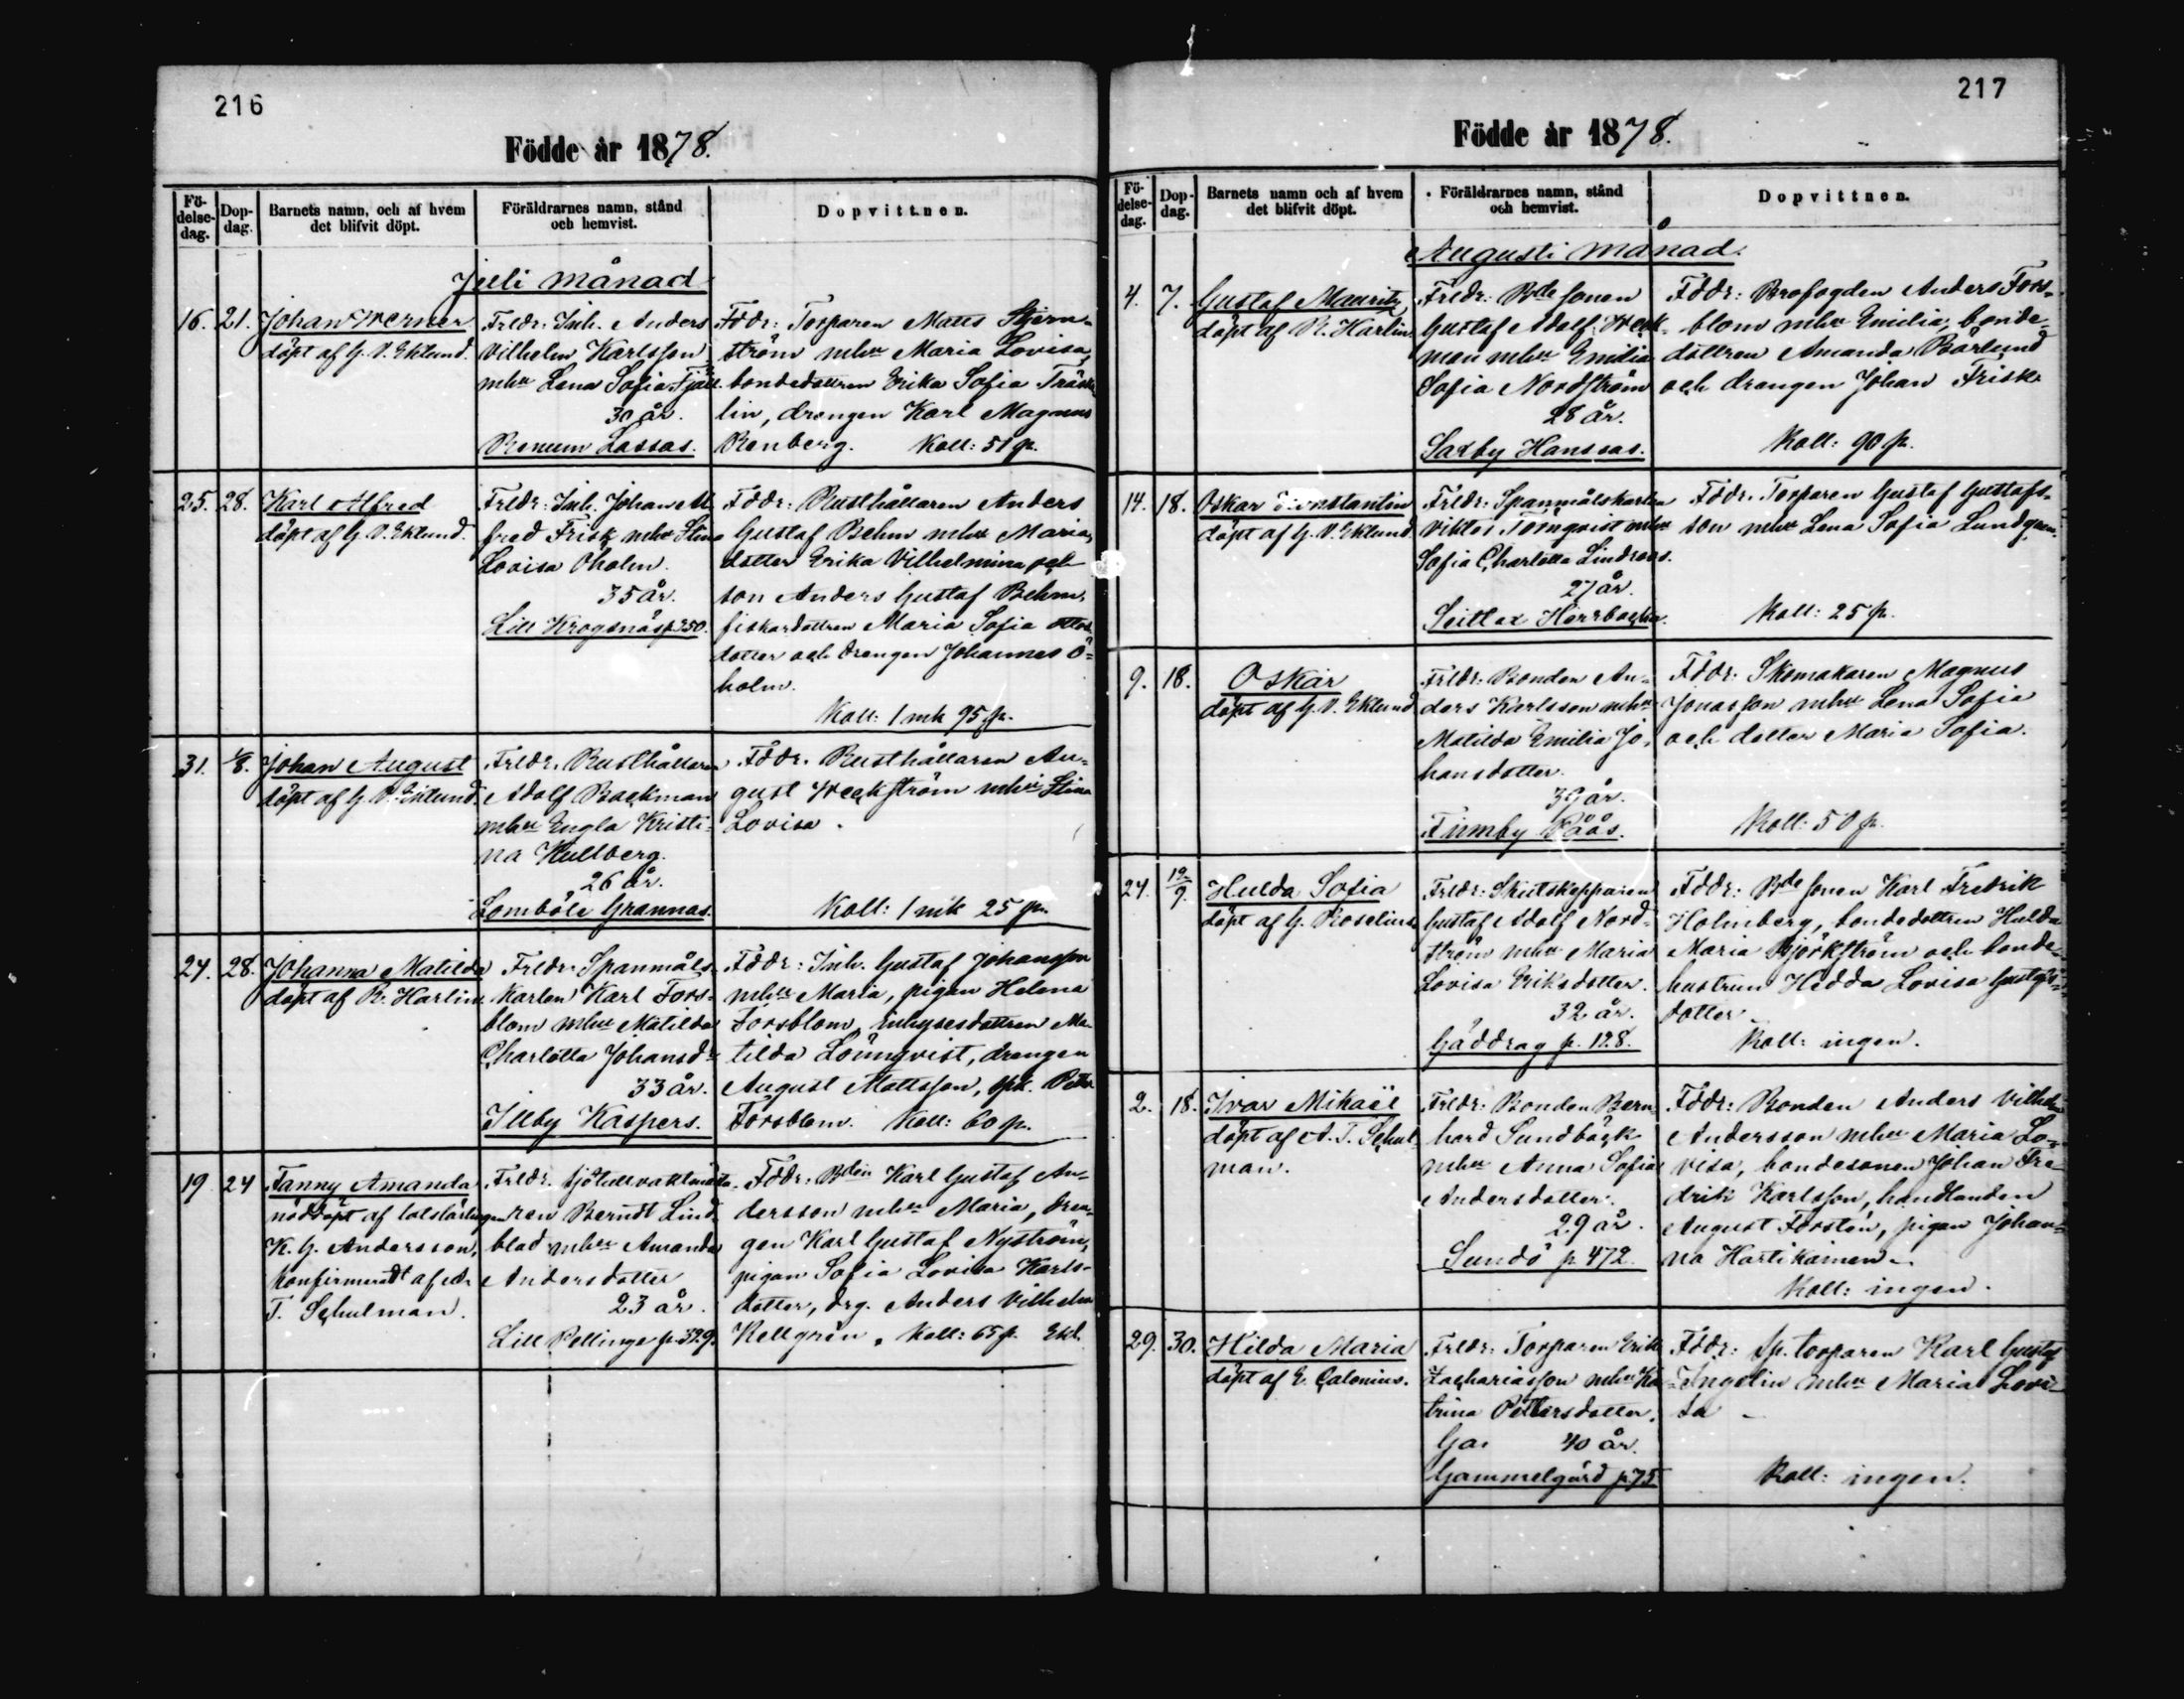 216
Födde år 1878.
Fö-
delse-
dag.
Dop-
dag.
Barnets namn, och af hvem
det blifvit döpt.
Föräldrarnes namn, stånd
och hemvist.
Dopvittnen.
Juli månad
16. 21.
Johan Werner
döpt af G. V. Eklund.
Frldr: Inh. Anders
Vilhelm Karlsson
mhu Lena Sofia
30 år.
Renum Lassas.
Fddr: Torparen Matts Stjern-
ström mhu Maria Lovisa,
bondedottren Erika Sofia Träsk-
lin, drengen Karl Magnus
Renberg. Koll: 51 p.
25. 28.
Karl Alfred
döpt af G. V. Eklund.
Frldr: Inh. Johan Al-
fred Frisk mhu Stina
Lovisa Öholm.
35 år.
Lill Krogsnäs p. 350.
Fddr: Rusthållaren Anders
Gustaf Behm mhu Maria,
dotter Erika Vilhelmina och
son Anders Gustaf Behm,
fiskardottren Maria Sofia Ottos-
dotter och drengen Johannes Ö-
holm.
Koll: 1 mk 95 p.
31. 4/8.
Johan August
döpt af G. V. Eklund.
Frldr. Rusthållaren
Adolf Backman
mhu Engla Kristi-
na Kullberg.
26 år.
Lomböle Grannas.
Fddr. Rusthållaren Au-
gust Weckström mhu Stina
Lovisa.
Koll: 1 mk 25 p.
24. 28.
Johanna Matilda
döpt af R. Harlin.
Frldr: Spanmåls-
karlen Karl Fors-
blom mhu Matilda
Charlotta Johansdr
33 år.
Illby Kaspers.
Fddr: Inh. Gustaf Johansson
mhu Maria, pigan Helena
Forsblom, Inhysesdottren Ma-
tilda Lönnqvist, drengen
August Mattsson,
Forsblom. Koll: 60 p.
19 24
Fanny Amanda
nöddöpt af lotslärlingen
K. G. Andersson,
konfirmeradt af A.
T. Schulman.
Frldr. Sjötullvaktmästa-
ren Berndt Lind-
blad mhu Amanda
Andersdotter
23 år.
Lill Pellinge p. 329.
Fddr: Bden Karl Gustaf An-
dersson mhu Maria, dren-
gen Karl Gustaf Nyström,
pigan Sofia Lovisa Karls-
dotter, drg. Anders Vilhelm
Kellgrén. Koll: 65 p. Ekl.
217
Födde år 1878.
Fö-
delse-
dag.
Dop-
dag.
Barnets namn och af hvem
det blifvit döpt.
Föräldrarnes namn, stånd
och hemvist.
Dopvittnen.
Augusti månad.
4. 7.
Gustaf Mauritz
döpt af R. Harlin
Frldr: Bde sonen
Gustaf Adolf Weck-
man mhu Emilia
Sofia Nordström
28 år.
Saxby Hanssas.
Fddr: Brofogden Anders Fors-
blom mhu Emilia, bonde-
dottren Amanda Barlund
och drengen Johan Frisk
Koll: 90 p.
14. 18.
Oskar Konstantin
döpt af G. V. Eklund
Frldr: Spanmålskarlen
Viktor Törnqvist mhu
Sofia Charlotta Lindroos.
27 år.
Seitlax Herrbacka.
Fddr. Torparen Gustaf Gustafs-
son mhu Lena Sofia
Koll: 25 p.
9. 18.
Oskar
döpt af G. V. Eklund
Frldr: Bonden An-
ders Karlsson mhu
Matilda Emilia Jo-
hansdotter.
39 år.
Finnby Råås.
Fddr: Skomakaren Magnus
Jonasson mhu Lena Sofia
och dotter Maria Sofia.
Koll: 50 p.
24. 12/9.
Hulda Sofia
döpt af G. Roselius
Frldr: Skutskepparen
Gustaf Adolf Nord-
ström mhu Maria
Lovisa Eriksdotter.
32 år.
Gäddrag p. 128.
Fddr: Bde sonen Karl Fredrik
Holmberg, bondedottren Hulda
Maria Björkström och bonde-
hustrun Hedda Lovisa Gustafs-
dotter.
Koll: ingen.
2. 18.
Ivar Mikaël
döpt af A. T. Schul-
man.
Frldr: Bonden Bern-
hard Sundbäck
mhu Anna Sofia
Andersdotter.
29 år.
Sundö p. 472.
Fddr: Bonden Anders Vilhelm
Andersson mhu Maria Lo-
visa, bondesonen Johan Fre-
drik Karlsson, handlanden
August Forstén, pigan Johan-
na Hartikainen.
Koll: ingen.
29. 30.
Hilda Maria
döpt af E. Calonius.
Frldr: Torparen Erik
Zachariasson mhu Ka-
trina Pettersdotter.
Ga. 40 år.
Gammelgård p. 75
Fddr: Sp. torparen Karl Gustaf
Ingelin mhu Maria Lovi-
sa
Koll: ingen.